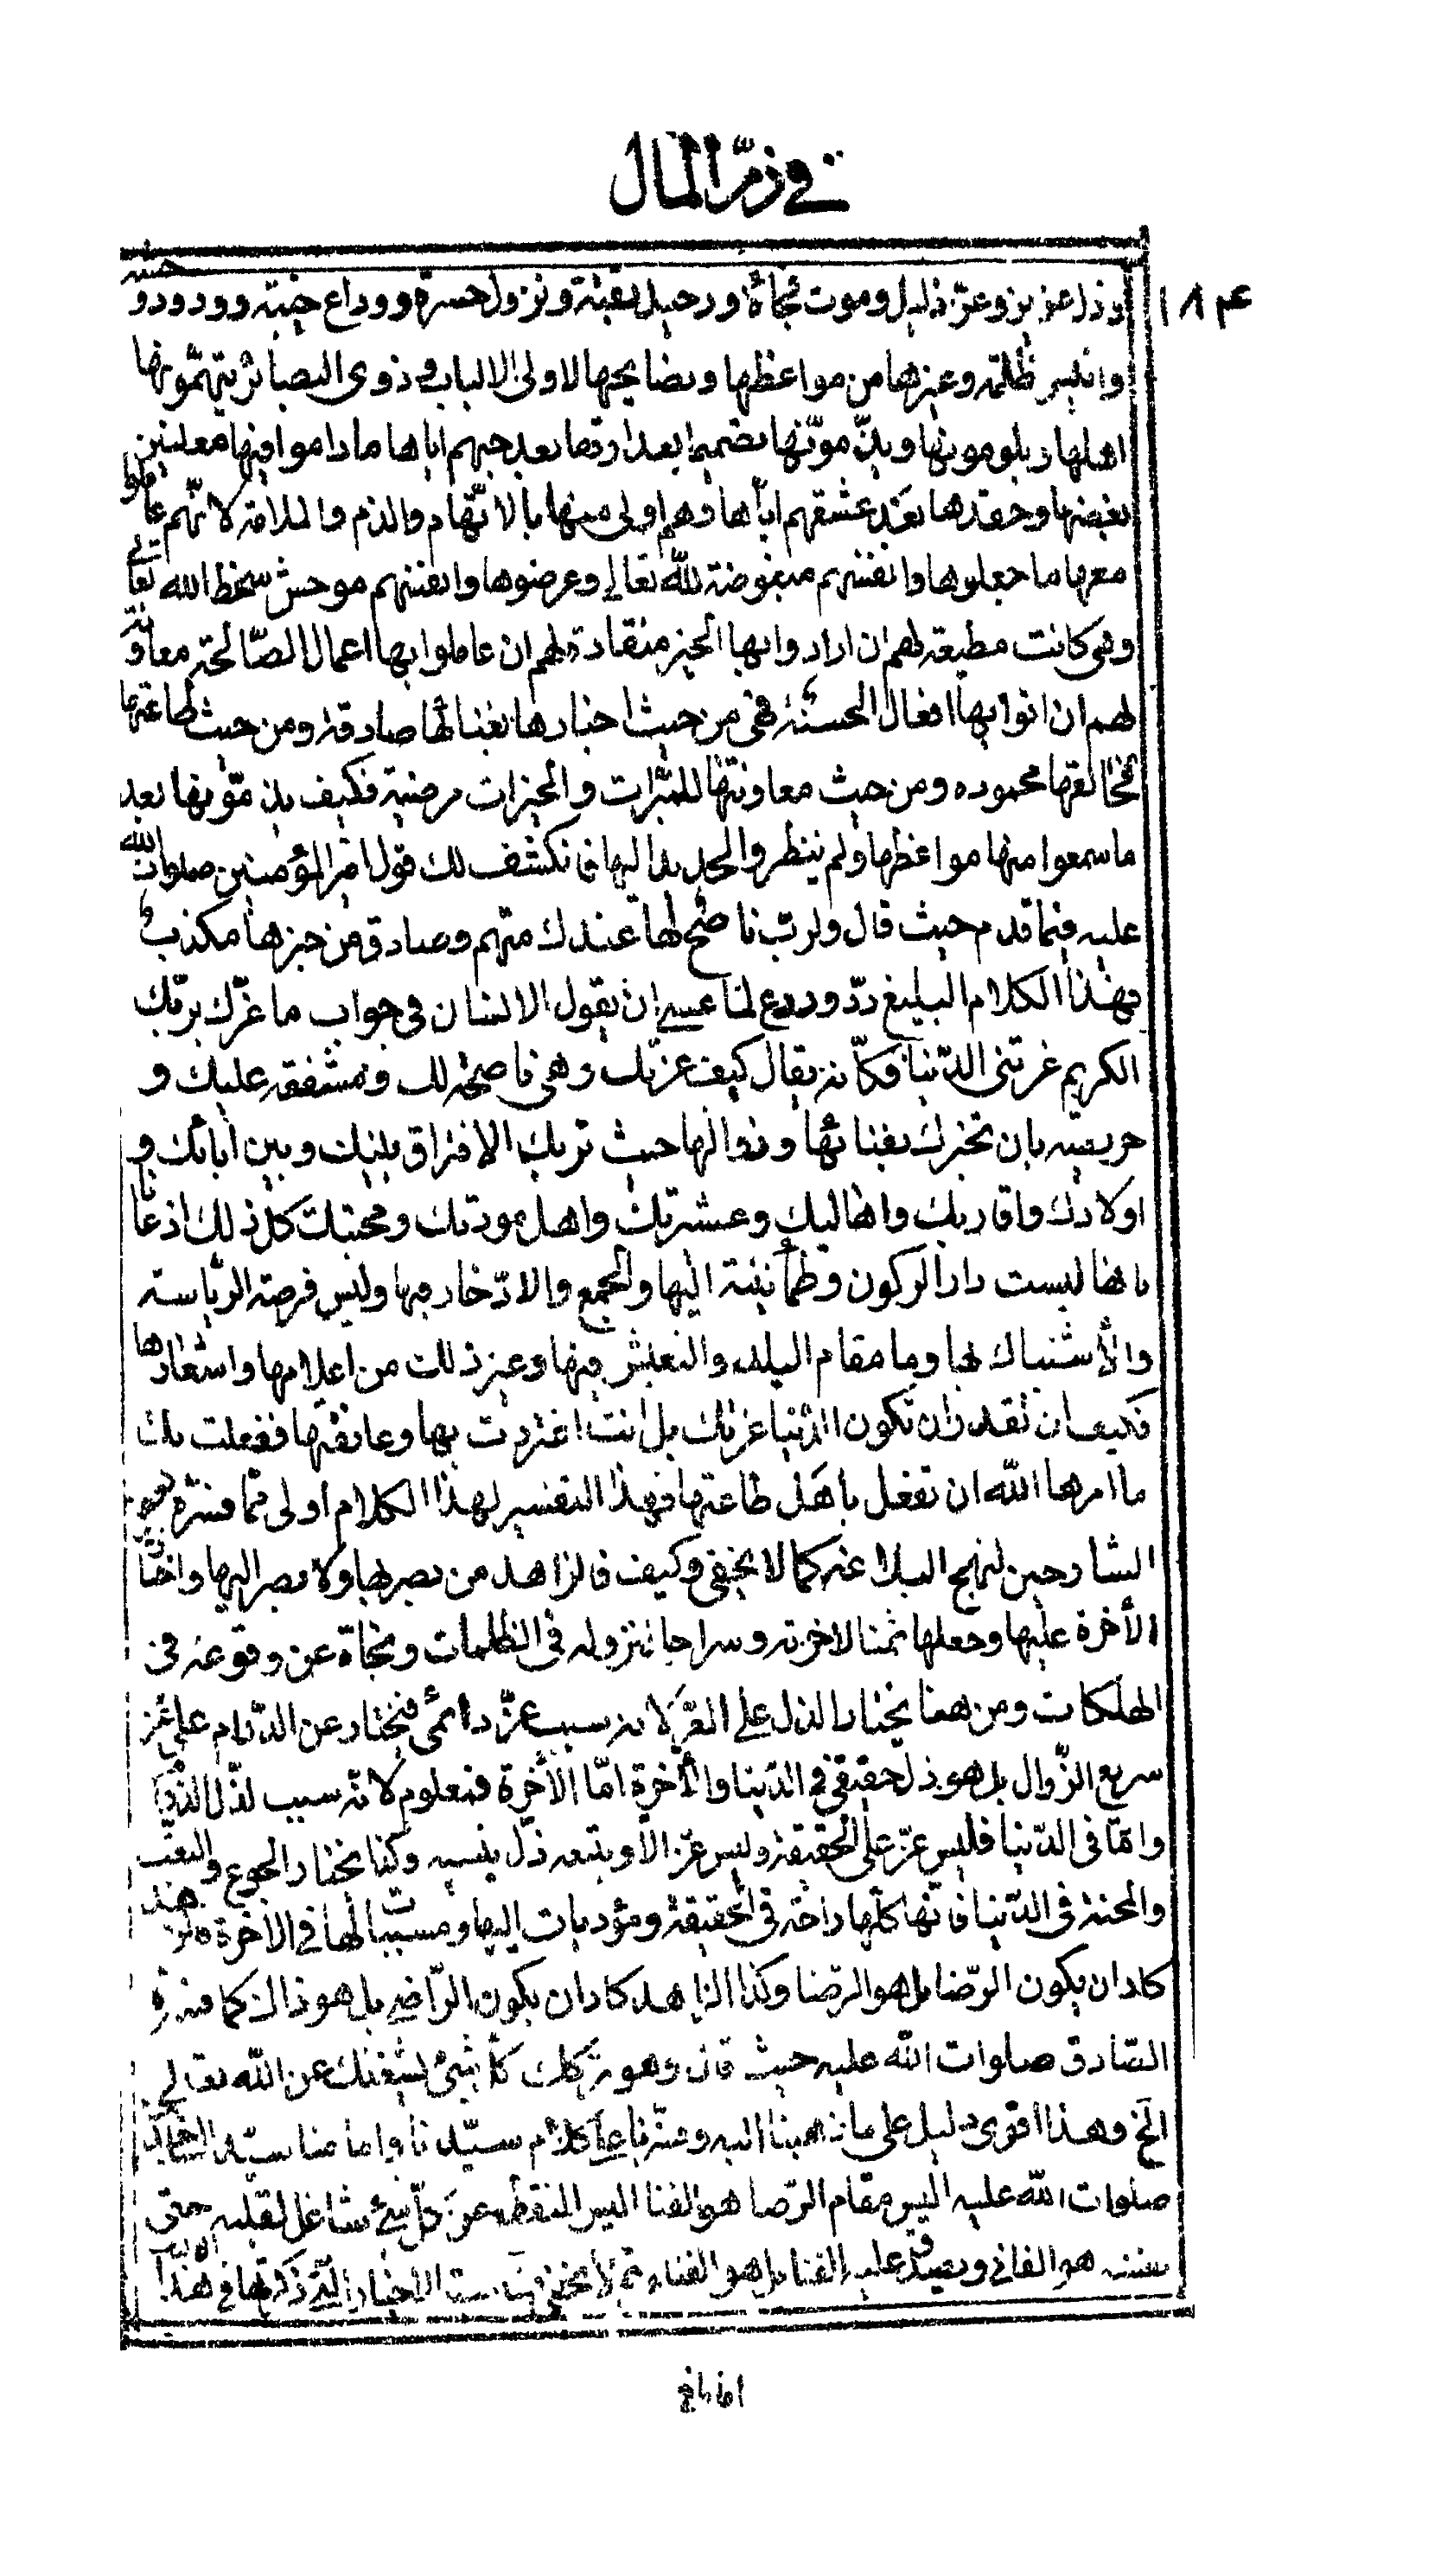 في ذمّ المال
١٨٤
وذل عزيز وعزّ ذليل وموت فجأة ورحيل بقيّة ونزول حسرة ووداع حبيبه وورود
وانليس ظلمة وغيرها من مواعظها ونصايحها لاولى الالباب وذوى البصائر يتهمونها
اهلها ويلومونها ويذمّونها بعد جهم اياها ما داموا فيها معلنين
بغضها وحقدها بعد عشقهم اياها وهم اولى منها بالاتّهام والذم والملامة لانّهم عاملوا
معها ما جعلوها وانفسهم مبغوضة للّه تعالى وعرضوها وانفسهم سخط الله تعالى
وهى كانت مطيعة لهم ان ارادوا بها الخير منقادة لهم ان عاملوا بها اعمال الصّالحة معاونة
لهم ان اتوا بها افعال الحسنة فهى من حيث اخبارها بفنائها صادقة ومن حيث طاعتها
لخالقها محموده ومن حيث معاونتها للمبرّات والخيرات مرضية فكيف يذمّونها بعد
ما سمعوا منها مواعظها ولم ينظروا اليها فانكشف لك قول امير المؤمنين صلوات اللّه
عليه فيما قدم حيث قال ولربّ ناصح لها عندك متهم وصادق من خبرها مكذب
فهذا الكلام البليغ ردّ وردع لما عسى ان يقول الانسان فى جواب ما غرّك بربّك
الكريم غرتنى الدّنيا فكأنه يقال كيف غرّتك وهى ناصحة لك ومشفقه عليك و
حريصه بان تخبرك بفنائها وزوالها حيث تريك الافتراق بينك وبين ابائك و
اولادك واقاربك واهاليك وعشيرتك واهل مودتك ومحبتك كل ذلك اذعانا
بانها ليست دار الركون وطمأنينة اليها والجمع والادّخار فيها وليس فرصة الرياسة
والأشتباك لها وما مقام البلد والتعيّش فيها وغير ذلك من اعلامها واشعارها
فكيف ان تقدر ان تكون الدّنيا غرتك بل انت اغتررت بها وعانقتها ففعلت بك
ما امرها اللّه ان تفعل باهل طاعتها فهذا التفسير لهذا الكلام اولى ممّا فسّره بعض
الشارحين لنهج البلاغة كما لا يخفى وكيف فالزاهد من بصر بها ولا بصر اليها واختار
الأخرة عليها وجعلها ثمنا لاخرته وسراجا لنزوله فى الظلمات ونجاة عن وقوعه فى
الهلكات ومن هنا يختار الذل على العزّ لانه سبب عزّ دائمى فيختار عن الدّوام على عز
سريع الزّوال بل هو ذل حقيقى فى الدّنيا والأخرة امّا الأخرة فمعلوم لانّه سبب لذلّ
وامّا فى الدّنيا فليس عزّ على الحقيقة وليس عزّ الّا ويتبعه ذلّ وكذا يختار الجوع والتعب
والمحنة فى الدّنيا فانّها كلّها راحة فى الحقيقة ومؤديات اليها ومسببات لها فى الاخرة
كاد ان يكون الرّضا بل هو الرضا وكذا الزاهد كاد ان يكون الرّاضى بل هو ذاك كما فسّره
الصّادق صلوات اللّه عليه حيث قال وهو تركك كل شىء يشغلك عن اللّه تعالى
الخ وهذا اقوى دليل على ما ذهبنا اليه كلام سيّدنا وامامنا سيّد
صلوات اللّه عليه اليس مقام الرّضا هو الفنا اليس المنقطع عن كلّ شىء شاغل لقلبه حتّى
نفسه هو الفانى ويصدق عليه الفنا بل هو الفناء ثم لا يخفى الاخبار الّتى ذكرتها فى هذا